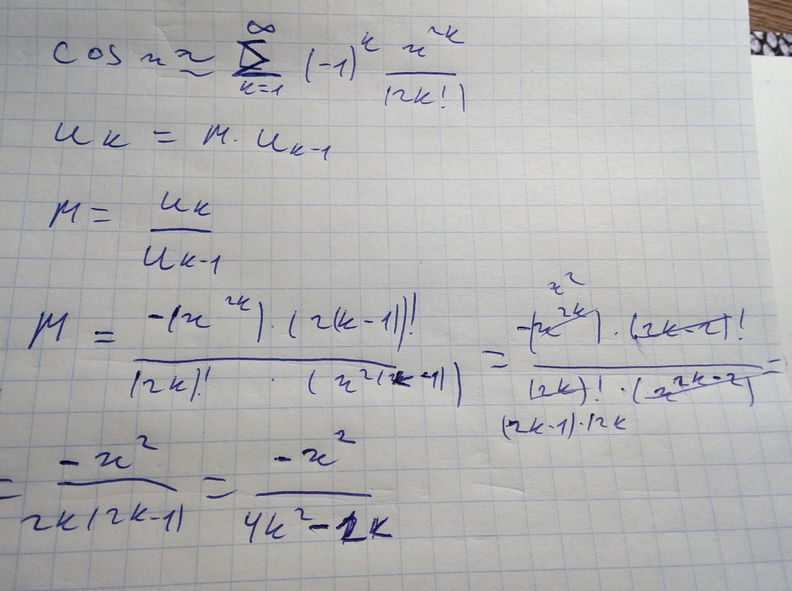 cos x ≈ ∑_{k=1}^{∞} (-1)^k x^{2k} / (2k!)
u_k = M · u_{k-1}
M = u_k / u_{k-1}
M = -(x^{2k}) · (2(k-1))! / (2k)! · (x^{2(k-1)}) = x^2 -(x^{2k}) · (2k-2)! / (2k)! · (x^{2k-2}) (2k-1)·2k =
= -x^2 / 2k(2k-1) = -x^2 / 4k^2-2k